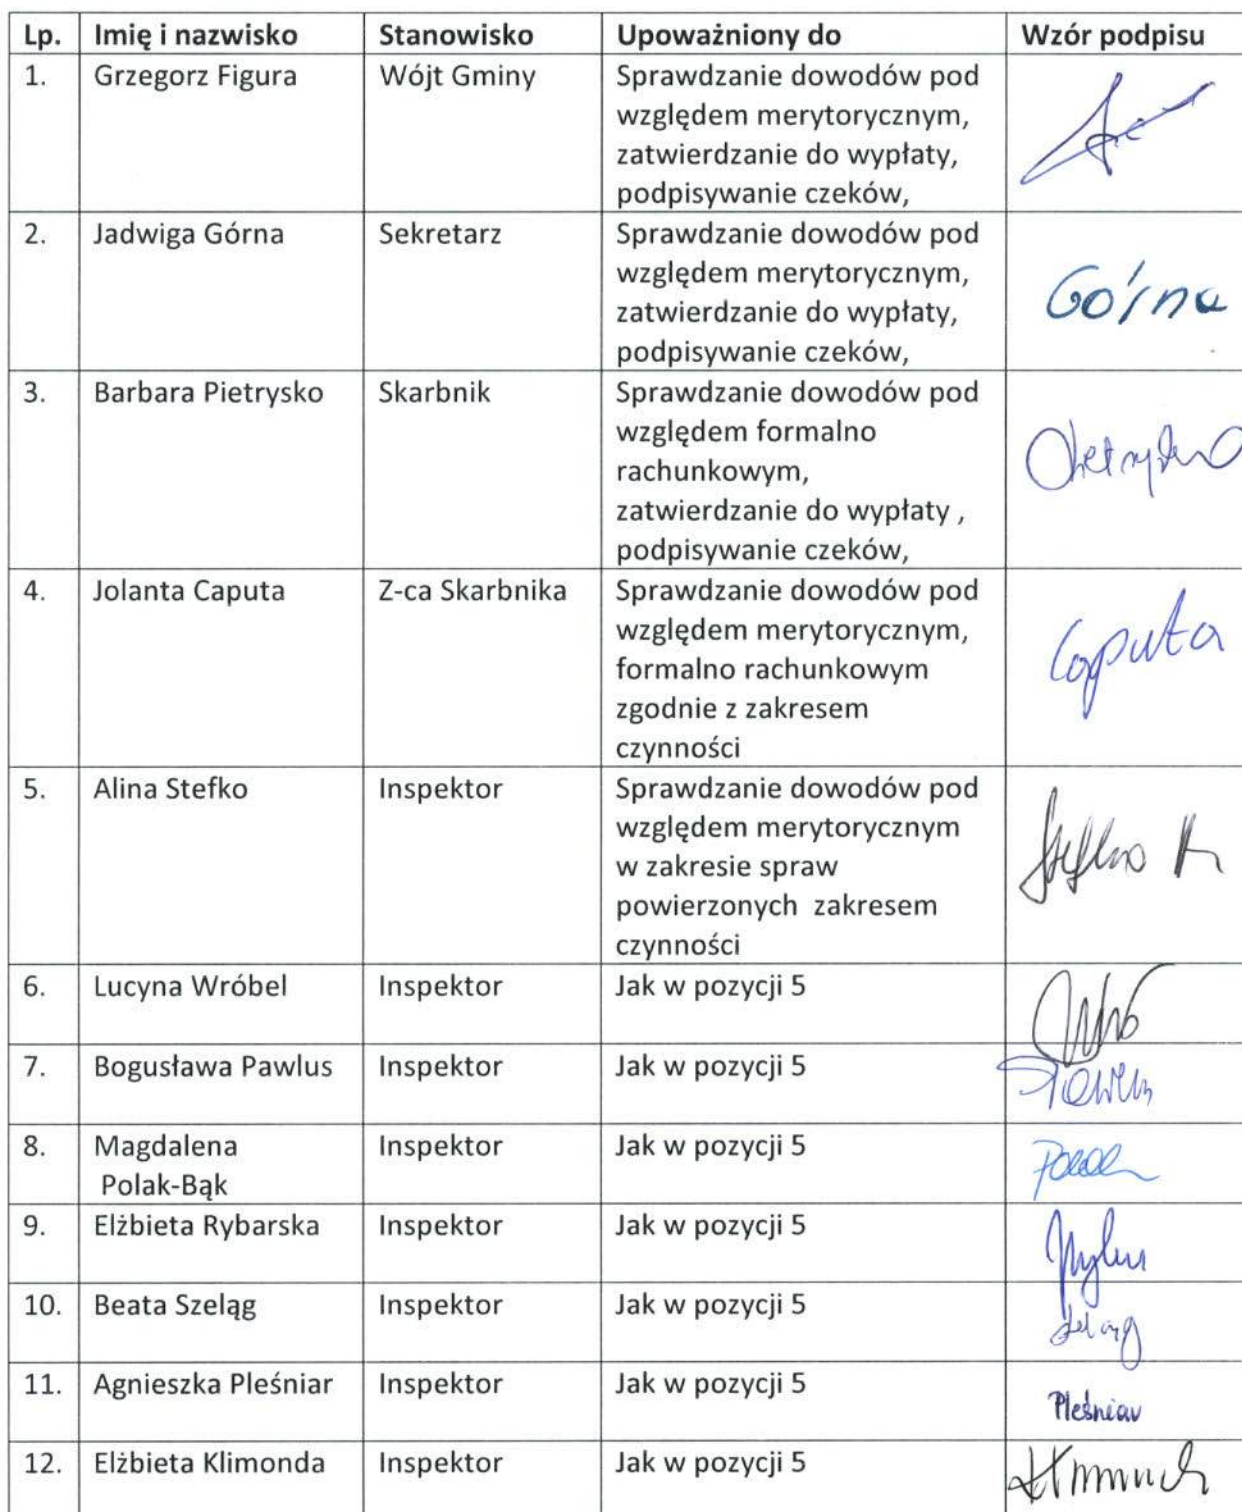 Lp. Imię i nazwisko Stanowisko Upoważniony do Wzór podpisu
1. Grzegorz Figura Wójt Gminy Sprawdzanie dowodów pod
względem merytorycznym,
zatwierdzanie do wypłaty,
podpisywanie czeków,
2. Jadwiga Górna Sekretarz Sprawdzanie dowodów pod
względem merytorycznym,
zatwierdzanie do wypłaty, Górna
podpisywanie czeków,
3. Barbara Pietrysko Skarbnik Sprawdzanie dowodów pod
względem formalno
rachunkowym,
zatwierdzanie do wypłaty ,
podpisywanie czeków,
4. Jolanta Caputa Z-ca Skarbnika Sprawdzanie dowodów pod
względem merytorycznym, Caputa
formalno rachunkowym
zgodnie z zakresem
czynności
5. Alina Stefko Inspektor Sprawdzanie dowodów pod
względem merytorycznym
w zakresie spraw
powierzonych zakresem
czynności
6. Lucyna Wróbel Inspektor Jak w pozycji 5
7. Bogusława Pawlus Inspektor Jak w pozycji 5
8. Magdalena Inspektor Jak w pozycji 5
Polak-Bąk
9. Elżbieta Rybarska Inspektor Jak w pozycji 5
10. Beata Szeląg Inspektor Jak w pozycji 5
11. Agnieszka Pleśniar Inspektor Jak w pozycji 5 Pleśniar
12. Elżbieta Klimonda Inspektor Jak w pozycji 5